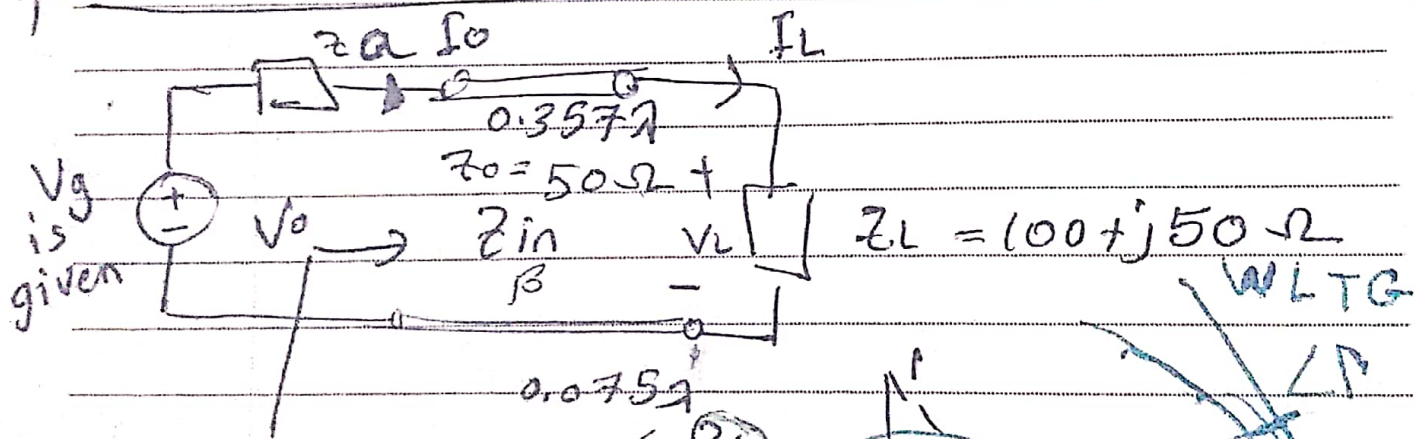 Za Io IL
0.357λ
Z0 = 50Ω +
Vg is given
+
-
Vo Zin VL ZL = 100+j50 Ω
β -
WLTG
0.075λ
∠Γ